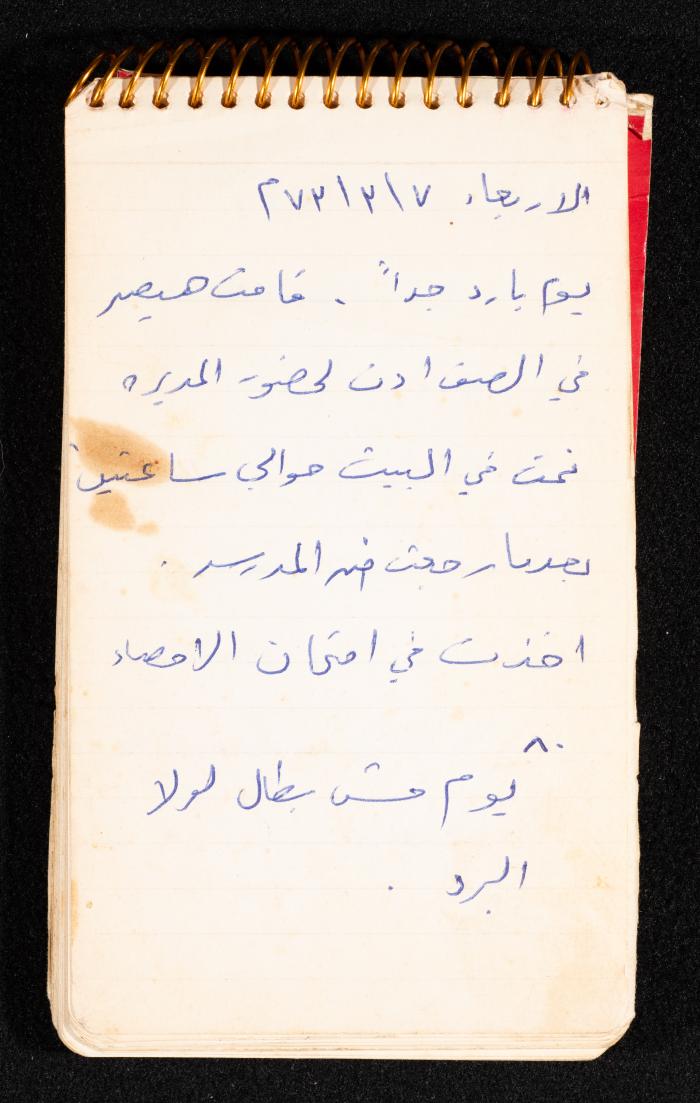 الاربعاء ٧/٣/٧٣م
يوم بارد جداً . قامت هيصه
في الصف ادت لحضور المديره
نمت في البيت حوالي ساعتين
بعدما رجعت من المدرسه .
اخذت في امتحان الاحصاء
٨٠
يوم مش بطال لولا
البرد .